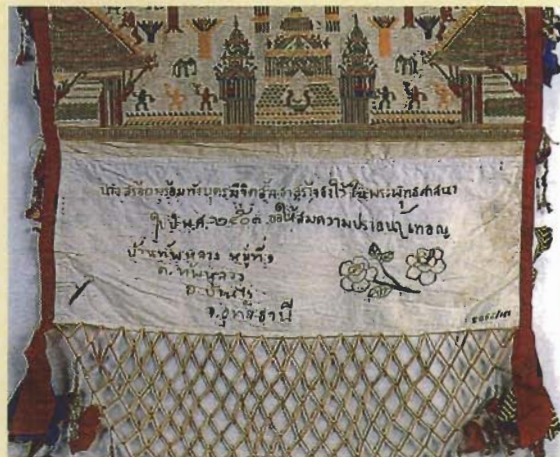 พร้อมทั้งบุตรมีจิตศรัทธาสร้างธงไว้ในพระพุทธศาสนา
ในปีพ.ศ. ๒๕๐๓ ขอให้สมความปรารถนาเทอญ
บ้านทัพหลวง หมู่ที่๑
ต.ทัพหลวง
อ.บ้านไร่
จ.อุทัยธานี